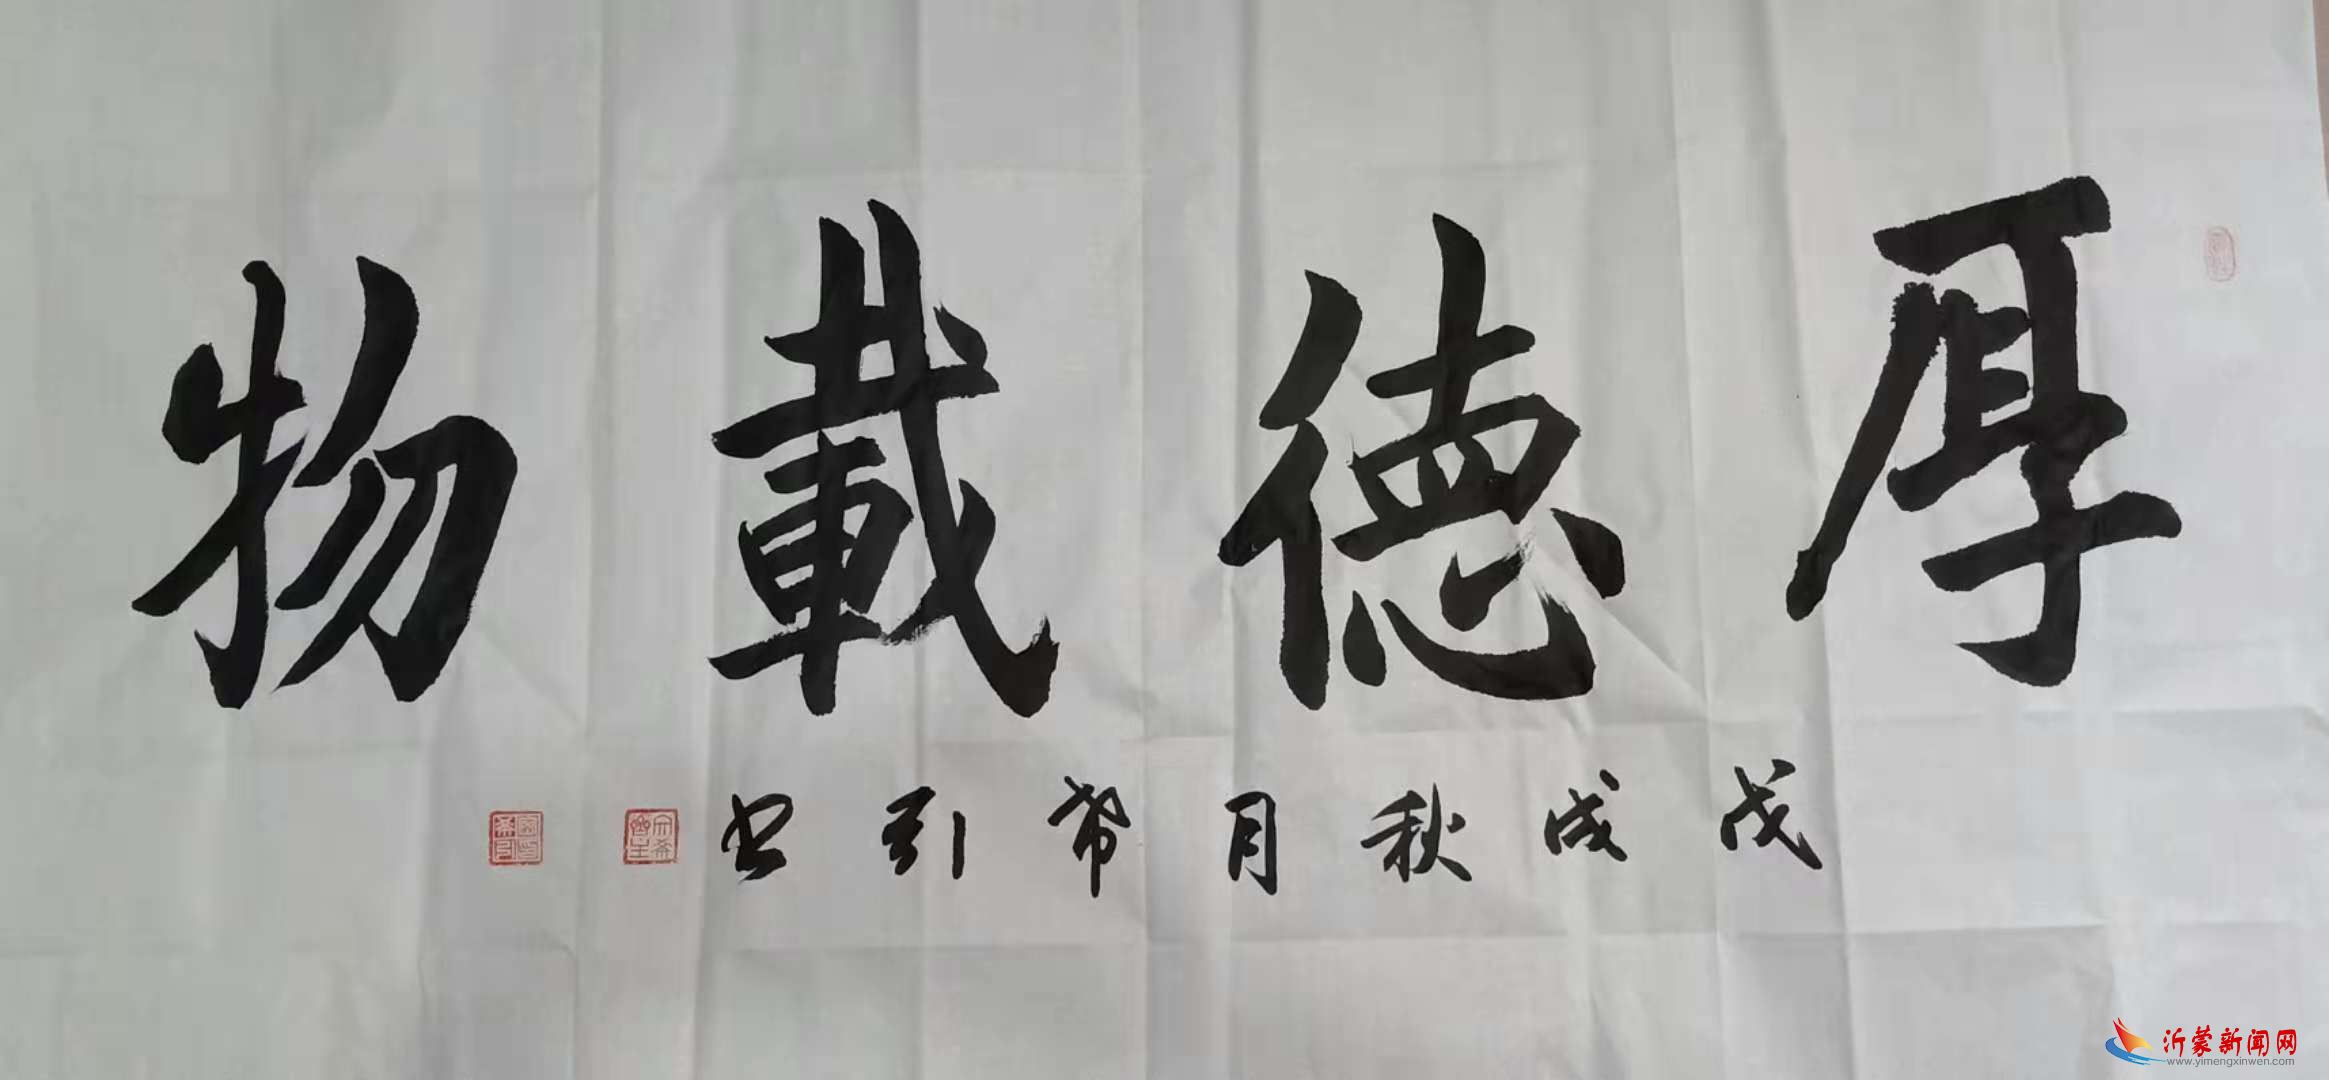 厚德載物
戊戌秋月希引书
沂蒙新闻网
www.yimengxinwen.com